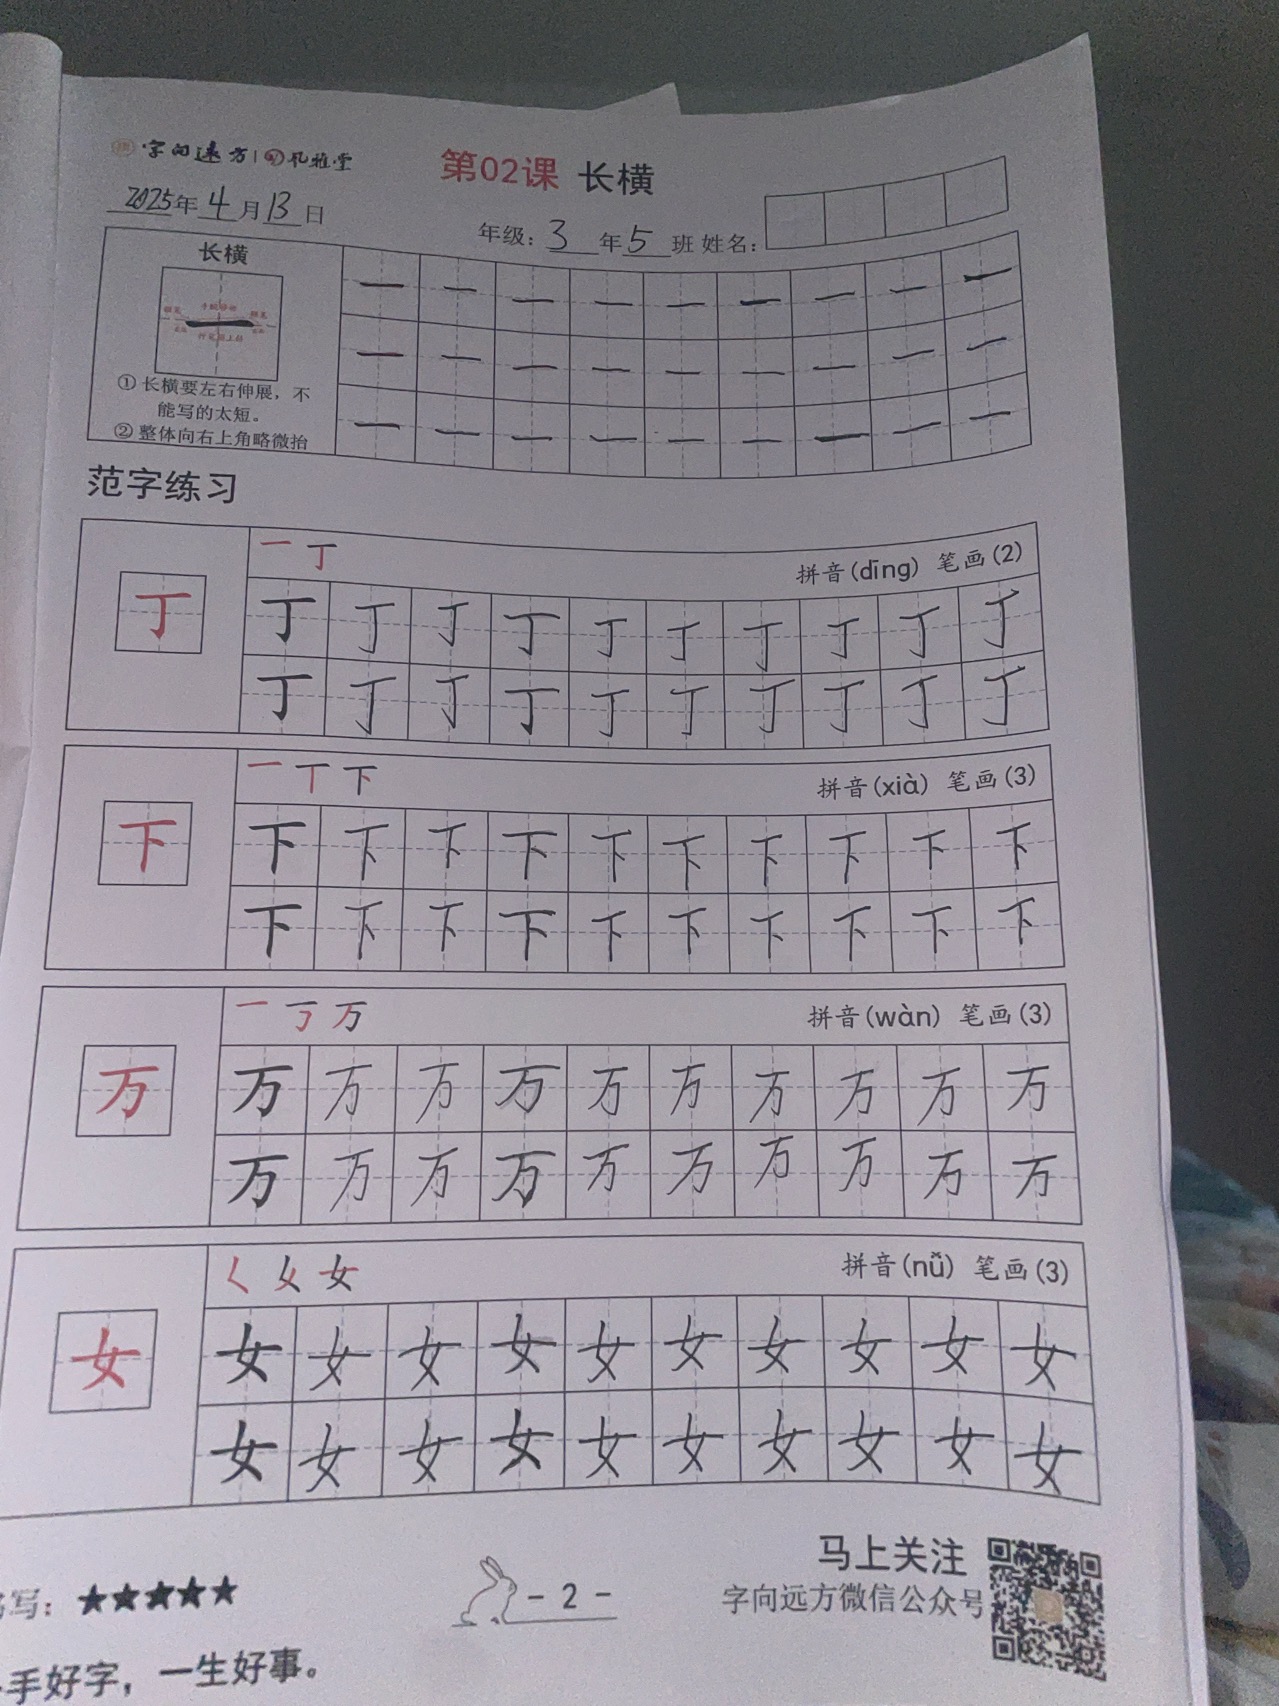 字向远方 | 孔雅堂
第02课 长横
2025年4月13日
年级：3年5班 姓名：
长横
① 长横要左右伸展，不
能写的太短。
② 整体向右上角略微抬
一 一 一 一 一 一 一 一 一
一 一 一 一 一 一 一 一 一
一 一 一 一 一 一 一 一 一
范字练习
一 丁
拼音(dīng) 笔画(2)
丁
丁 丁 丁 丁 丁 丁 丁 丁 丁 丁
丁 丁 丁 丁 丁 丁 丁 丁 丁 丁
一 丅 下
拼音(xià) 笔画(3)
下
下 下 下 下 下 下 下 下 下 下
下 下 下 下 下 下 下 下 下 下
一 丂 万
拼音(wàn) 笔画(3)
万
万 万 万 万 万 万 万 万 万 万
万 万 万 万 万 万 万 万 万 万
𡿨 乂 女
拼音(nǚ) 笔画(3)
女
女 女 女 女 女 女 女 女 女 女
女 女 女 女 女 女 女 女 女 女
写：★★★★★
- 2 -
马上关注
字向远方微信公众号
手好字，一生好事。